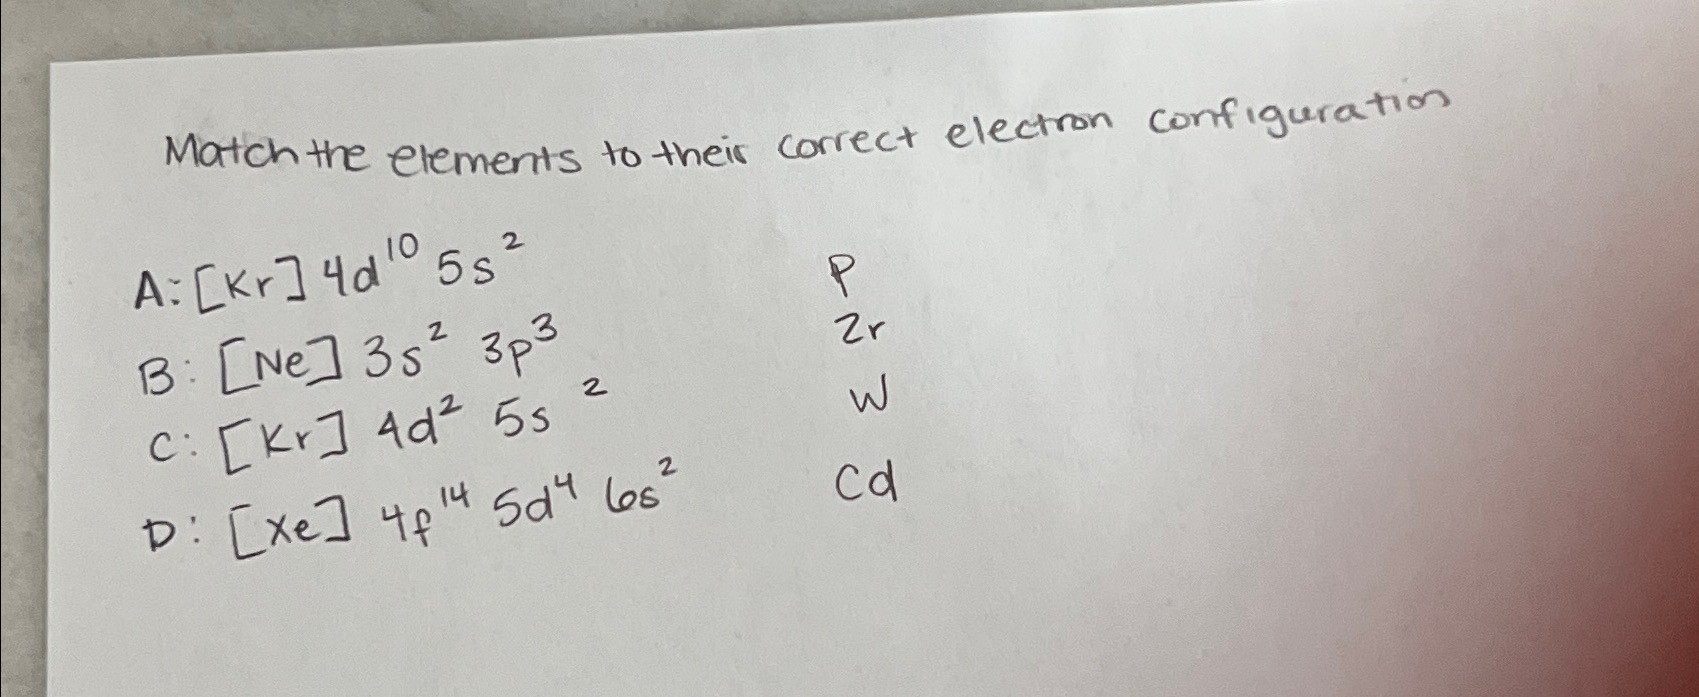 Match the elements to their correct electron configuration
A: [Kr] 4d¹⁰ 5s²
P
B: [Ne] 3s² 3p³
Zr
C: [Kr] 4d² 5s²
W
D: [Xe] 4f¹⁴ 5d⁴ 6s²
Cd